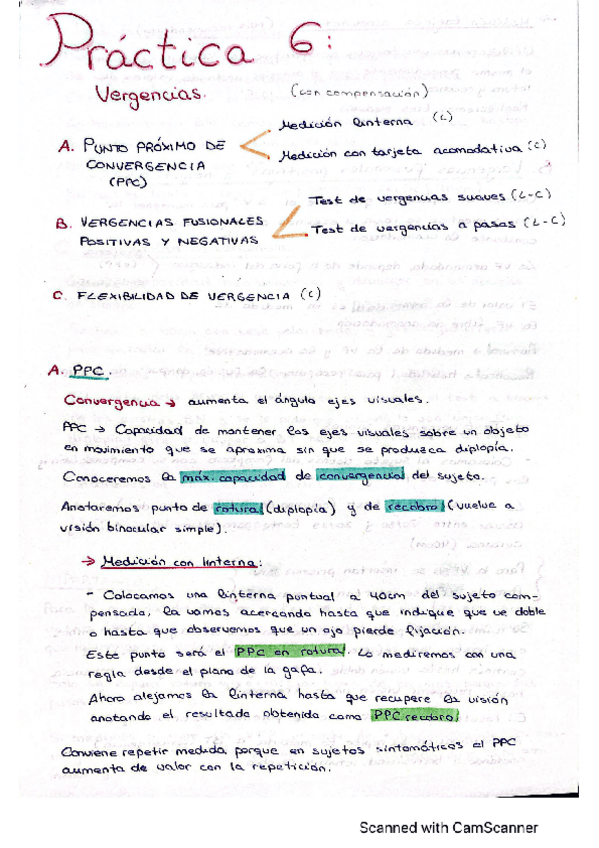 Práctica 6:
Vergencias. (con compensación)
A. PUNTO PRÓXIMO DE CONVERGENCIA (PPC)
Medición linterna (C)
Medición con tarjeta acomodativa (C)
B. VERGENCIAS FUSIONALES POSITIVAS Y NEGATIVAS
Test de vergencias suaves (L-C)
Test de vergencias a pasos (L-C)
C. FLEXIBILIDAD DE VERGENCIA (C)
A. PPC.
Convergencia → aumenta el ángulo ejes visuales.
PPC → Capacidad de mantener los ejes visuales sobre un objeto
en movimiento que se aproxima sin que se produzca diplopía.
Conoceremos la máx. capacidad de convergencia del sujeto.
Anotaremos punto de rotura (diplopía) y de recobro (vuelve a
visión binocular simple).
→ Medición con linterna:
- Colocamos una linterna puntual a 40cm del sujeto com-
pensada, la vamos acercando hasta que indique que ve doble
o hasta que observemos que un ojo pierde fijación.
Este punto será el PPC en rotura. Lo mediremos con una
regla desde el plano de la gafa.
Ahora alejamos la linterna hasta que recupere la visión
anotando el resultado obtenido como PPC recobro.
Conviene repetir medida porque en sujetos sintomáticos el PPC
aumenta de valor con la repetición.
Scanned with CamScanner